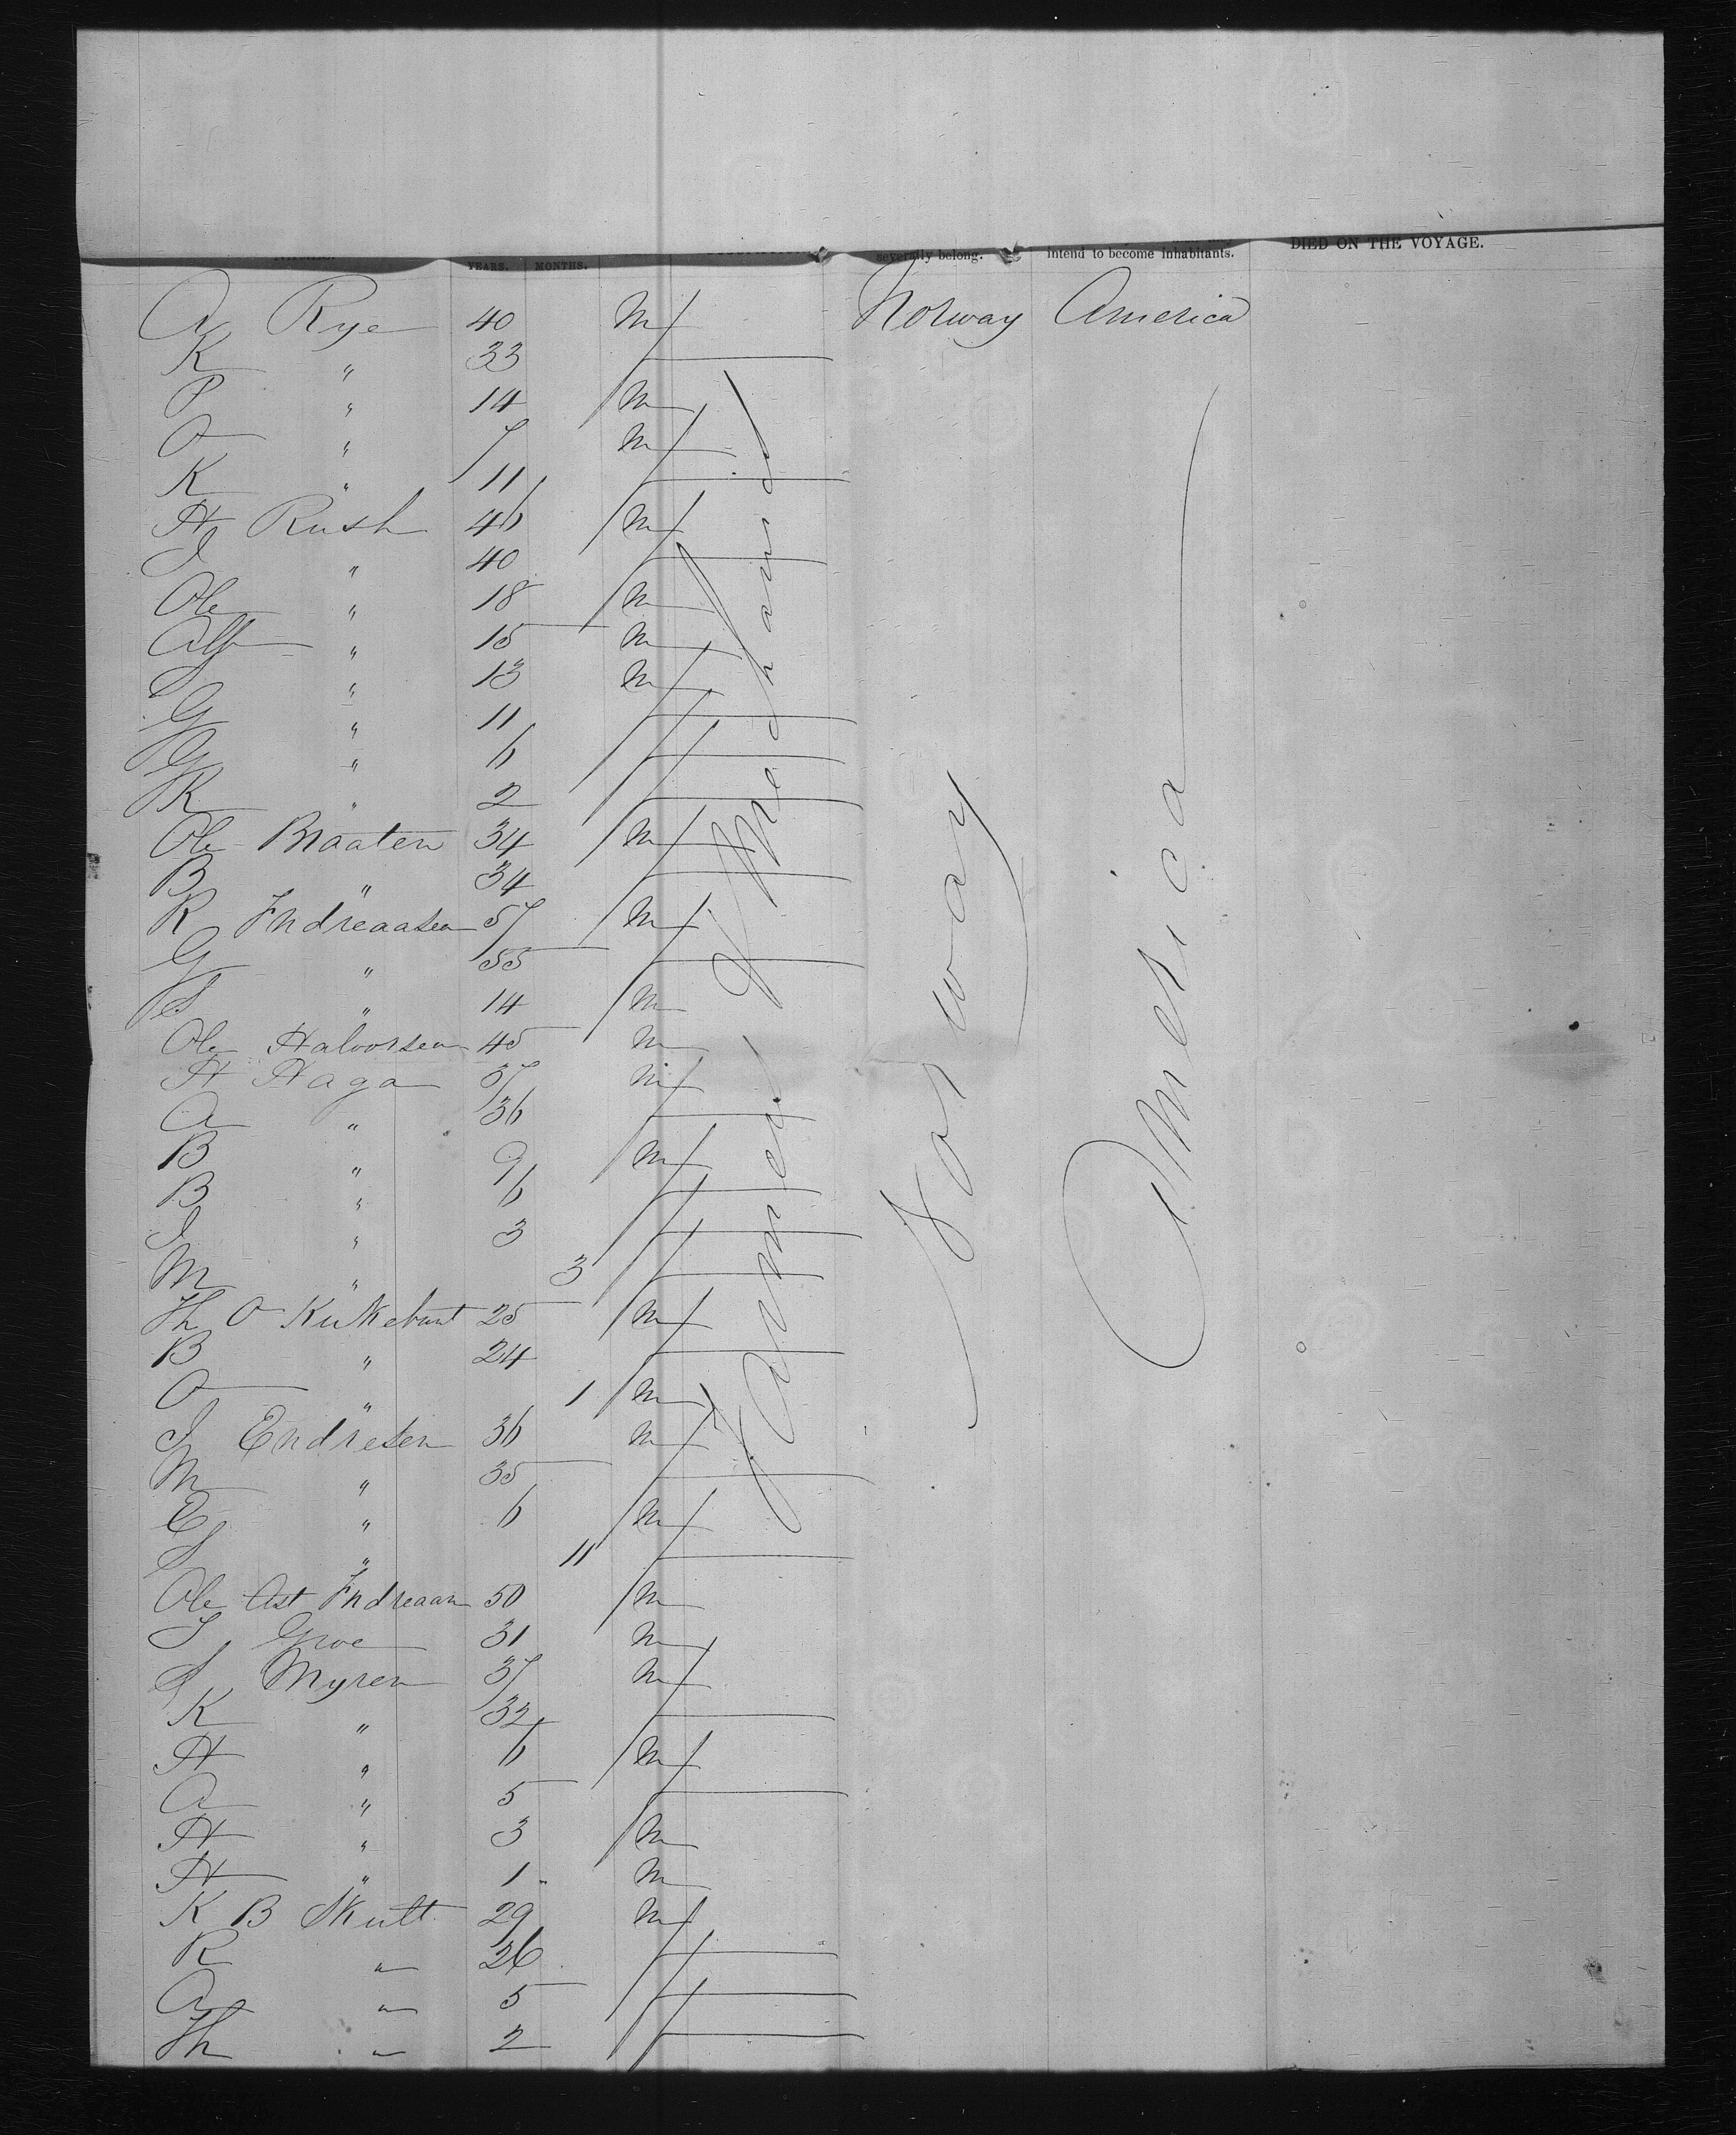 YEARS. MONTHS. severally belong. intend to become inhabitants. DIED ON THE VOYAGE.
A Rye 40 M Norway America
K " 33 f
P " 14 M
O " 7 M
K " 11 f
H Rush 46 M
I " 40 f
Ole " 18 M
Alf " 15 M
S " 13 M
G " 11 f
G " 6 f
K " 2 f
Ole Braaten 34 M
B " 34 f
K Indreaasen 57 M
G " 55 f
S " 14 M
Ole Halvorsen 45 M
H Haga 37 M
A " 36 f
B " 9 M
B " 6 f
I " 3 f
M " 3 f
Th O 25 M
B " 24 f
O " 1 M
I Endresen 36 M
M " 35 f
E " 6 M
S " 11 f
Ole Ast Indreaas 50 M
S Groe 31 M
S Myren 37 M
K " 32 f
H " 6 M
A " 5 f
H " 3 M
H " 1 M
K B Skutt 29 M
R " 26 f
A " 5 f
Th " 2 f
Farmer & Mechanic
Norway
America